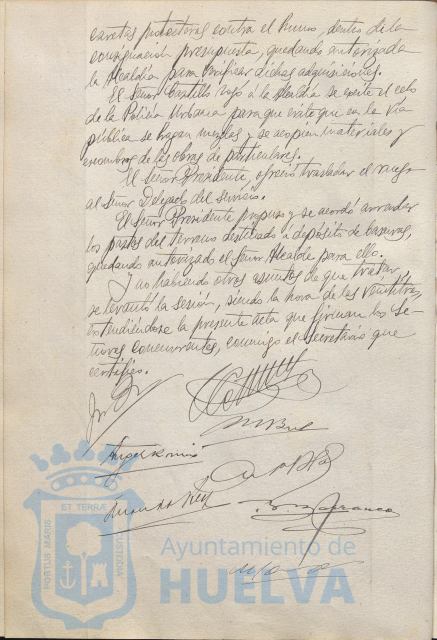 caretas protectoras contra el humo, dentro de la
consignación presupuesta, quedando autorizada
la Alcaldía para verificar dichas adquisiciones.
El Señor Castillo rogó a la Alcaldía se excite el celo
de la Policía Urbana para que evite que en la vía
pública se hagan mezclas y se acopien materiales y
escombros de las obras de particulares.
El Señor Presidente, ofreció trasladar el ruego
al Señor Delegado del Servicio.
El Señor Presidente propuso y se acordó arrendar
los pastos del terreno destinado a depósito de basuras,
quedando autorizado el Señor Alcalde para ello.
Y no habiendo otros asuntos de que tratar,
se levantó la sesión, siendo la hora de las veintitres,
extendiéndose la presente Acta que firman los Se-
ñores concurrentes, conmigo el Secretario que
certifico.
PORTUS MARIS ET TERRÆ CUSTODIA
Ayuntamiento de
HUELVA